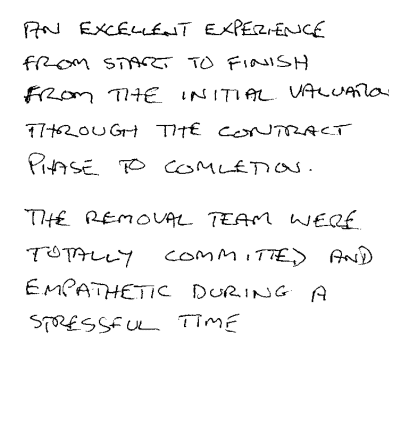 AN EXCELLENT EXPERIENCE
FROM START TO FINISH
FROM THE INITIAL VALUATION
THROUGH THE CONTRACT
PHASE TO COMLETION.
THE REMOVAL TEAM WERE
TOTALLY COMMITTED AND
EMPATHETIC DURING A
STRESSFUL TIME